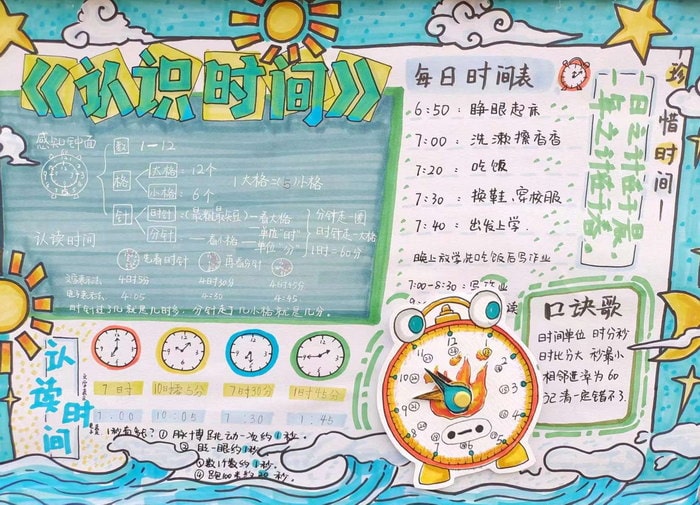 《认识时间》
感知钟面
数 1—12
格
大格：12个
小格：6个
1大格=5小格
针
时针：(最粗最短)—看大格
分针
看小格
单位"时"
单位"分"
分针走一圈
时针走一大格
1时=60分
认读时间
先看时针
再看分针
4时5分
4时30分
4时45分
4:05
4:30
4:45
时针过了几就是几时多，分针走了几小格就是几分。
每日时间表
6:50：睁眼起床
7:00：洗漱擦香香
7:20：吃饭
7:30：换鞋、穿校服
7:40：出发上学.
晚上放学洗吃饭后写作业
7:00-8:30：写作业
珍惜时间
一日之计在于晨
一年之计在于春
口诀歌
时间单位 时分秒
时比分大 秒最小
相邻进率为60
记清一定错不了.
认读时间
7时
10时零5分
7时30分
1时45分
7:00
10:05
7:30
1:45
1秒有多长?①脉搏跳动一次约1秒.
②眨一眼约1秒.
③数1个数约1秒.